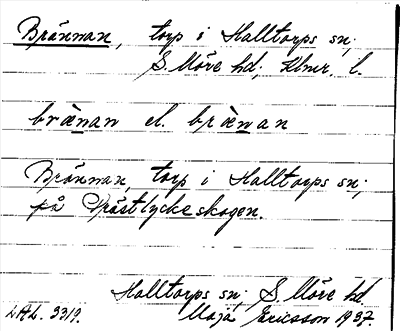 Brännan, torp i Halltorps sn;
S. Möre hd, Klmr. l.
brä̀nan el. brä̀nan
Brännan, torp i Halltorps sn;
på Prästlyckeskogen.
Halltorps sn; S. Möre hd.
LAL. 3319. Maja Ericsson 1937.